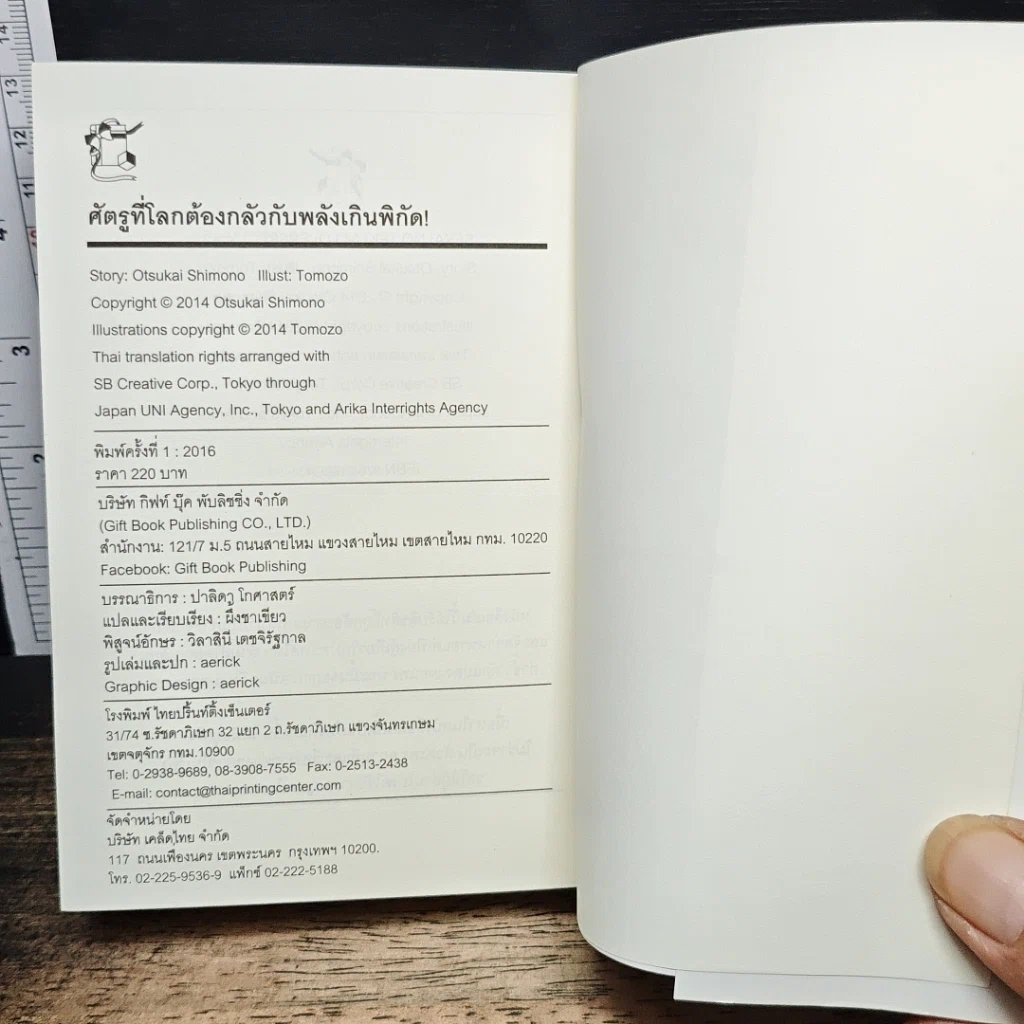 ศัตรูที่โลกต้องกลัวกับพลังเกินพิกัด!
Story: Otsukai Shimono Illust: Tomozo
Copyright © 2014 Otsukai Shimono
Illustrations copyright © 2014 Tomozo
Thai translation rights arranged with
SB Creative Corp., Tokyo through
Japan UNI Agency, Inc., Tokyo and Arika Interrights Agency
พิมพ์ครั้งที่ 1 : 2016
ราคา 220 บาท
บริษัท กิฟท์ บุ๊ค พับลิชชิ่ง จำกัด
(Gift Book Publishing CO., LTD.)
สำนักงาน: 121/7 ม.5 ถนนสายไหม แขวงสายไหม เขตสายไหม กทม. 10220
Facebook: Gift Book Publishing
บรรณาธิการ : ปาลิดา โกศาสตร์
แปลและเรียบเรียง : ผึ้งชาเขียว
พิสูจน์อักษร : วิลาสินี เตชจิรัฐกาล
รูปเล่มและปก : aerick
Graphic Design : aerick
โรงพิมพ์ ไทยปริ้นท์ติ้งเซ็นเตอร์
31/74 ซ.รัชดาภิเษก 32 แยก 2 ถ.รัชดาภิเษก แขวงจันทรเกษม
เขตจตุจักร กทม.10900
Tel: 0-2938-9689, 08-3908-7555 Fax: 0-2513-2438
E-mail: contact@thaiprintingcenter.com
จัดจำหน่ายโดย
บริษัท เคล็ดไทย จำกัด
117 ถนนเฟื่องนคร เขตพระนคร กรุงเทพฯ 10200.
โทร. 02-225-9536-9 แฟ็กซ์ 02-222-5188
14
13
12
11
3